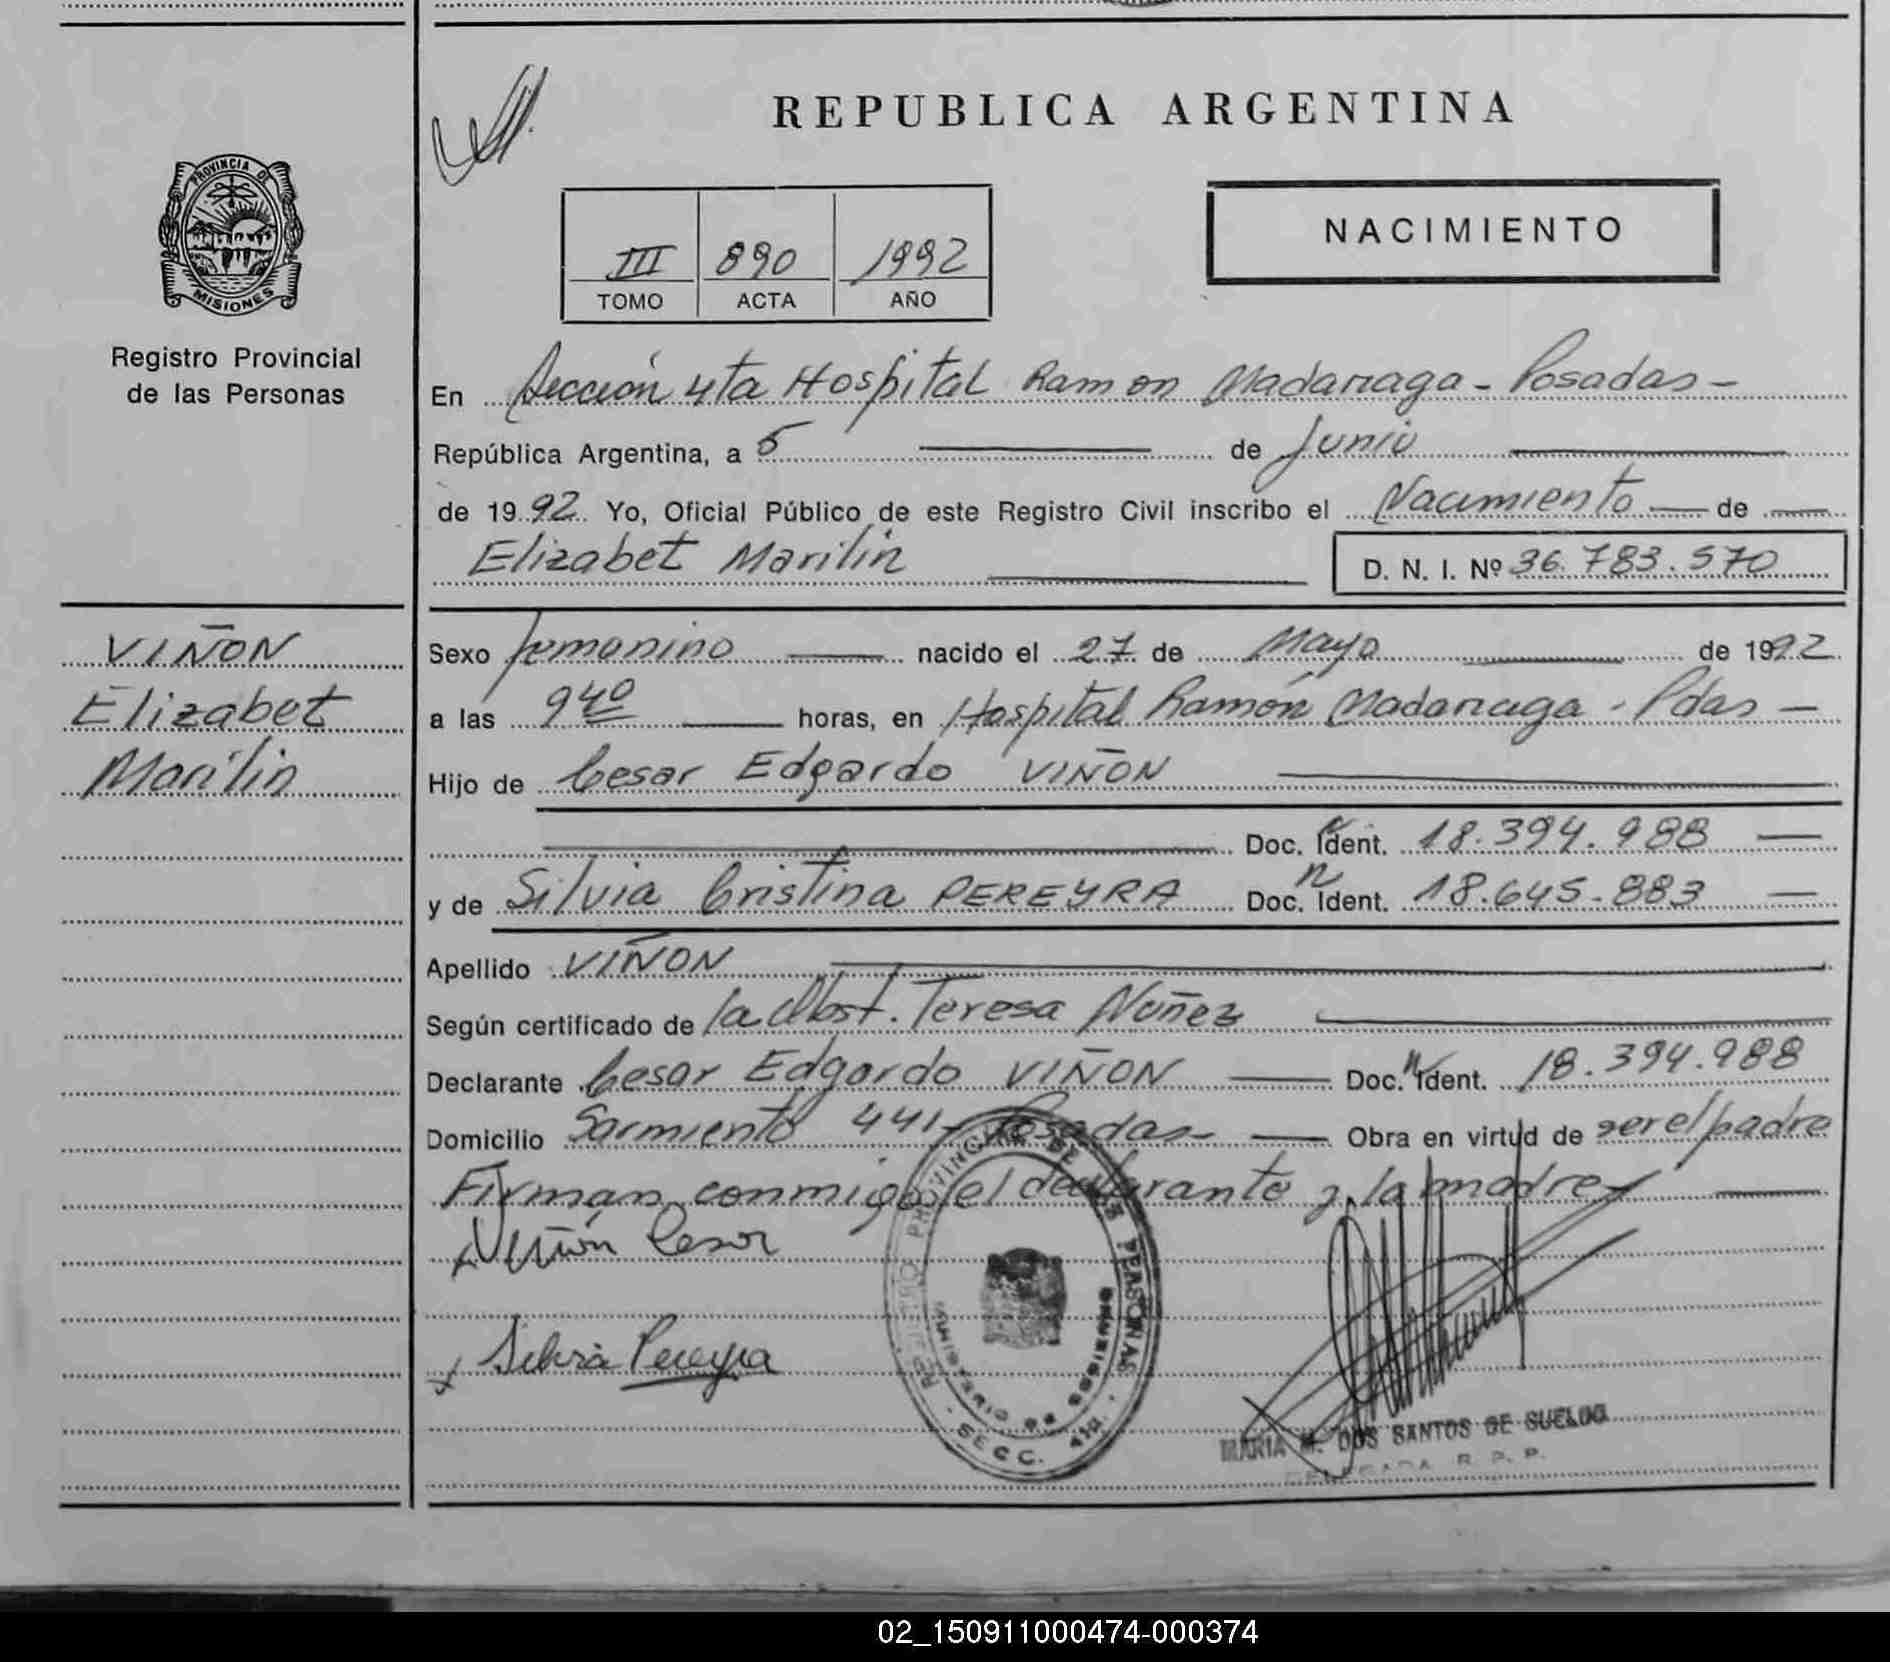 REPUBLICA ARGENTINA
PROVINCIA DE
MISIONES
Registro Provincial
de las Personas
NACIMIENTO
III 890 1992
TOMO ACTA AÑO
En Sección 4ta Hospital Ramon Madariaga - Posadas -
República Argentina, a 5 de Junio
de 1992 Yo, Oficial Público de este Registro Civil inscribo el Nacimiento de
Elizabet Marilin D. N. I. Nº 36.783.570
VIÑON
Elizabet
Marilin
Sexo femenino nacido el 27 de Mayo de 1992
a las 9 40 horas, en Hospital Ramón Madariaga - Pdas -
Hijo de Cesar Edgardo VIÑON
Doc. Ident. 18.394.988
y de Silvia Cristina PEREYRA Doc. Ident. 18.645.883
Apellido VIÑON
Según certificado de la Obst. Teresa Nuñez
Declarante Cesar Edgardo VIÑON Doc. Ident. 18.394.988
Domicilio Sarmiento 441 - Posadas - Obra en virtud de ser el padre
Firman conmigo el declarante y la madre
Viñón Cesar
Silvia Pereyra
REGISTRO PROVINCIAL DE LAS PERSONAS
MINISTERIO DE GOBIERNO
SECC. 4ta.
MARIA M. DOS SANTOS DE SUELDO
DELEGADA R. P. P.
02_150911000474-000374